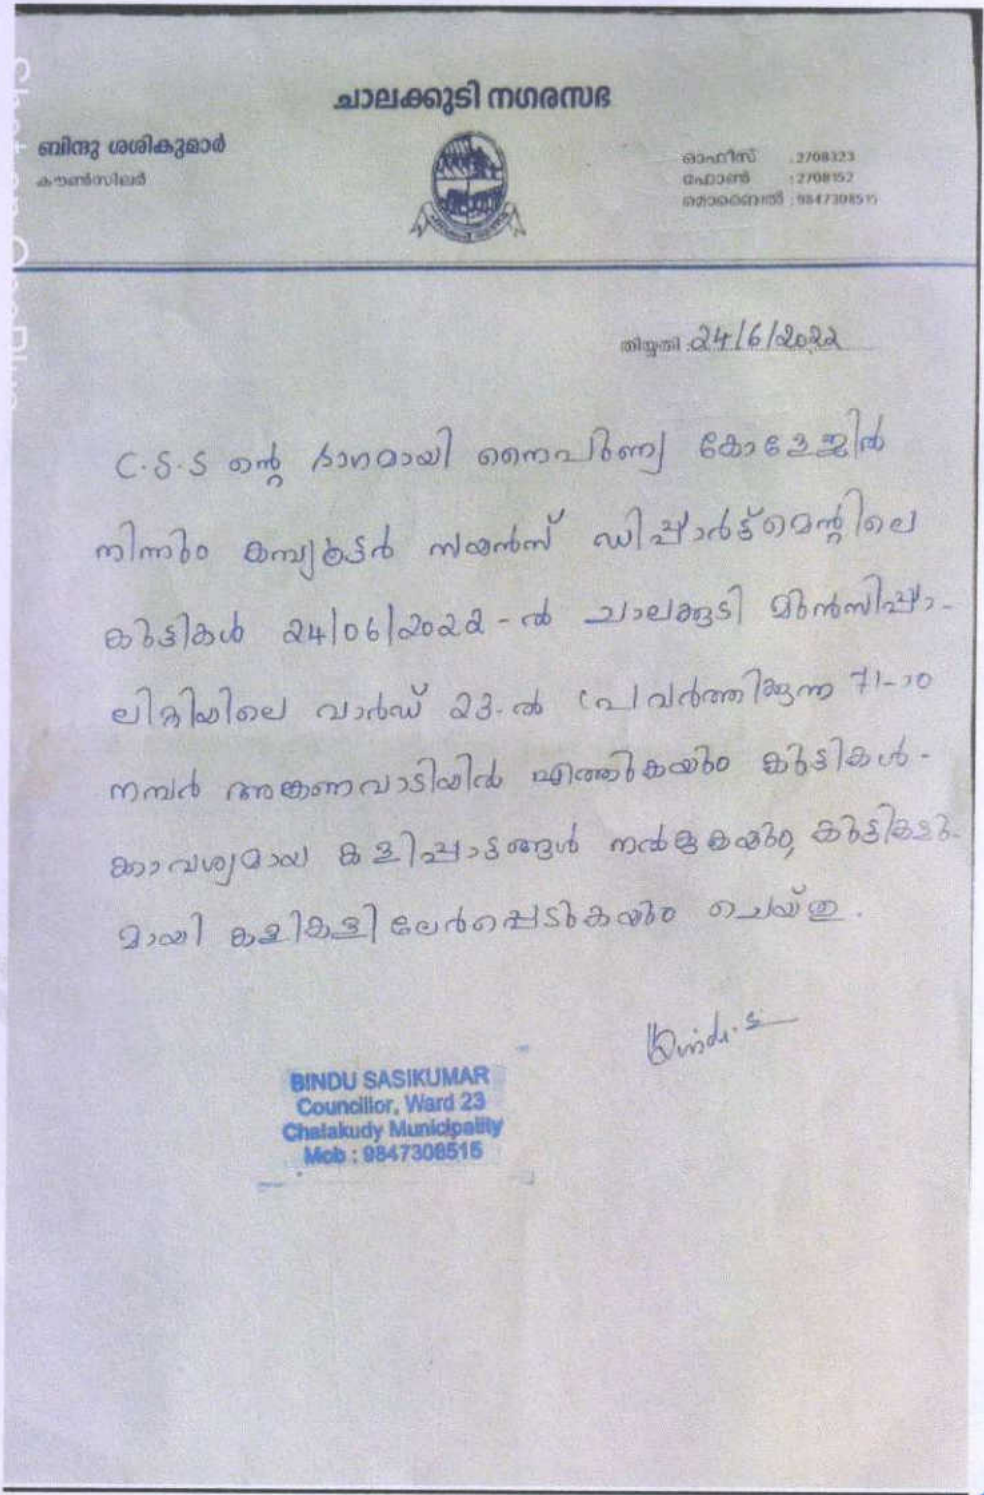 ചാലക്കുടി നഗരസഭ
ബിന്ദു ശശികുമാർ
കൗൺസിലർ
ഓഫീസ് : 2708323
ഫോൺ : 2708152
മൊബൈൽ : 9847308515
തിയ്യതി : 24/6/2022
C.S.S ന്റെ ഭാഗമായി നൈപുണ്യ കോളേജിൽ
നിന്നും കമ്പ്യൂട്ടർ സയൻസ് ഡിപ്പാർട്ട്മെന്റിലെ
കുട്ടികൾ 24/06/2022-ൽ ചാലക്കുടി മുൻസിപ്പാ-
ലിറ്റിയിലെ വാർഡ് 23-ൽ പ്രവർത്തിക്കുന്ന 71-ാo
നമ്പർ അങ്കണവാടിയിൽ എത്തുകയും കുട്ടികൾ-
ക്കാവശ്യമായ കളിപ്പാട്ടങ്ങൾ നൽകുകയും, കുട്ടികളു-
മായി കളികളിലേർപ്പെടുകയും ചെയ്തു.
Bindu.S
BINDU SASIKUMAR
Councillor, Ward 23
Chalakudy Municipality
Mob : 9847308515